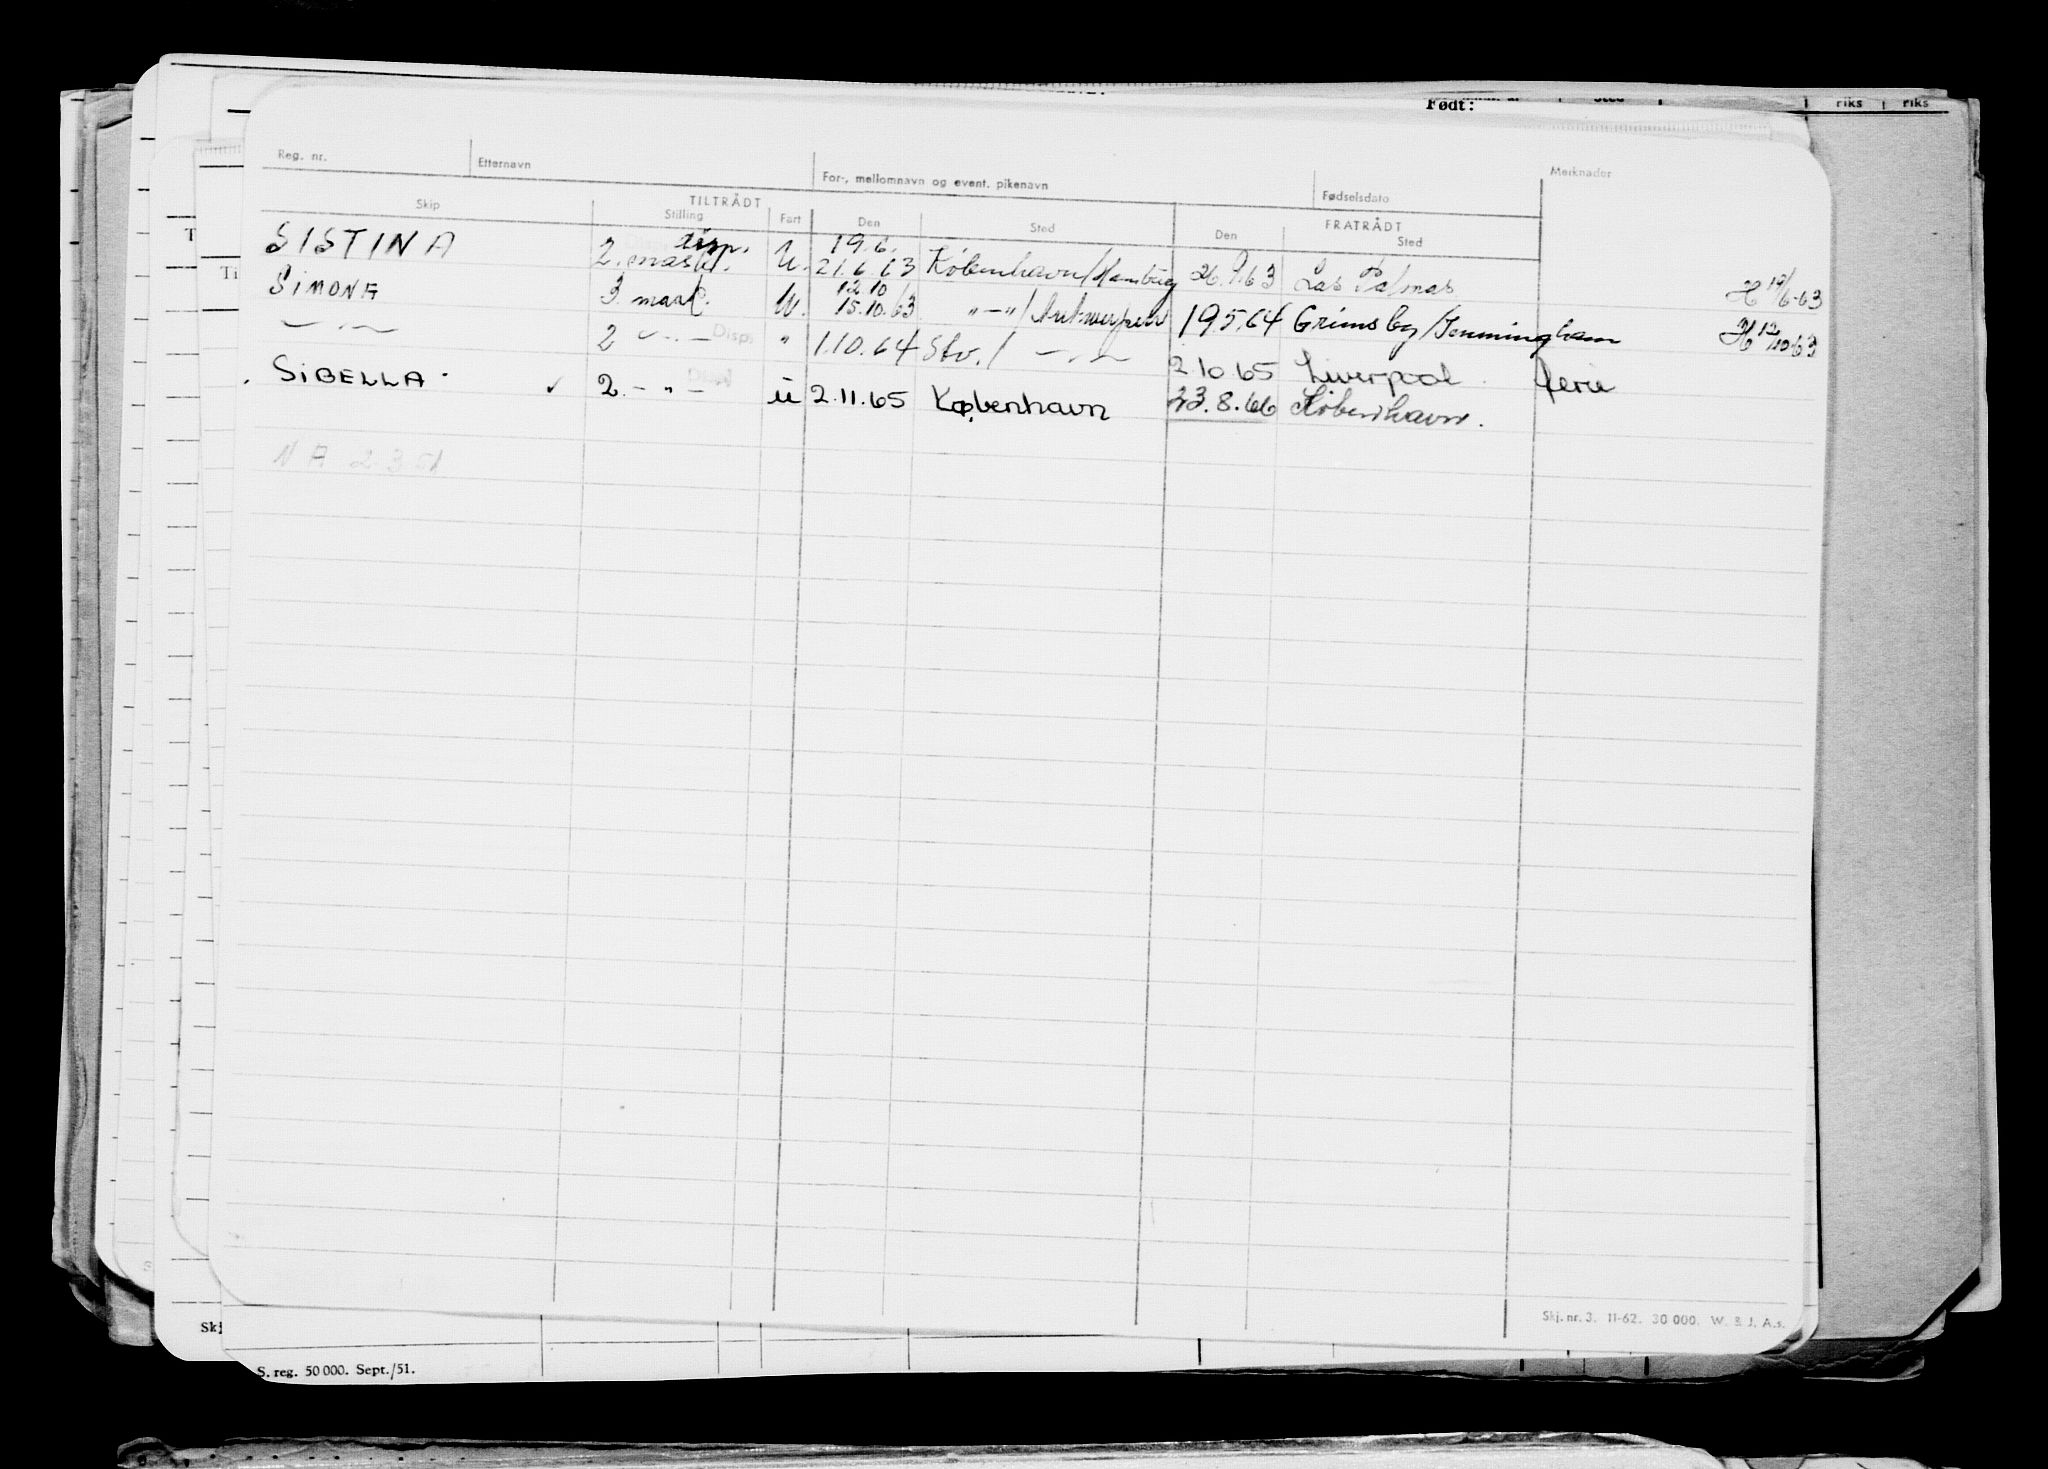 Født:
riks riks
Reg. nr. Etternavn For-, mellomnavn og event. pikenavn Fødselsdato Merknader
TILTRÅDT FRATRÅDT
Skip Stilling Fart Den Sted Den Sted
SISTINA 2. mask. disp. U. 19.6. 21.6.63 København/Hamburg 26.9.63 Las Palmas H 19/6-63
SIMONA 3. mask. U. 12.10 15.10.63 "-"/Antwerpen 19.5.64 Grimsby/Immingham H 12/10-63
-"- 2 -"- Disp. " 1.10.64 Stv./ -"- 2.10.65 Liverpool. ferie
SIBELLA 2. -"- Disp u 2.11.65 København 23.8.66 København.
N A 2 3 51
Skj. nr. 3. 11-62. 30 000. W. & J. A.s.
Skj
S. reg. 50 000. Sept./51.